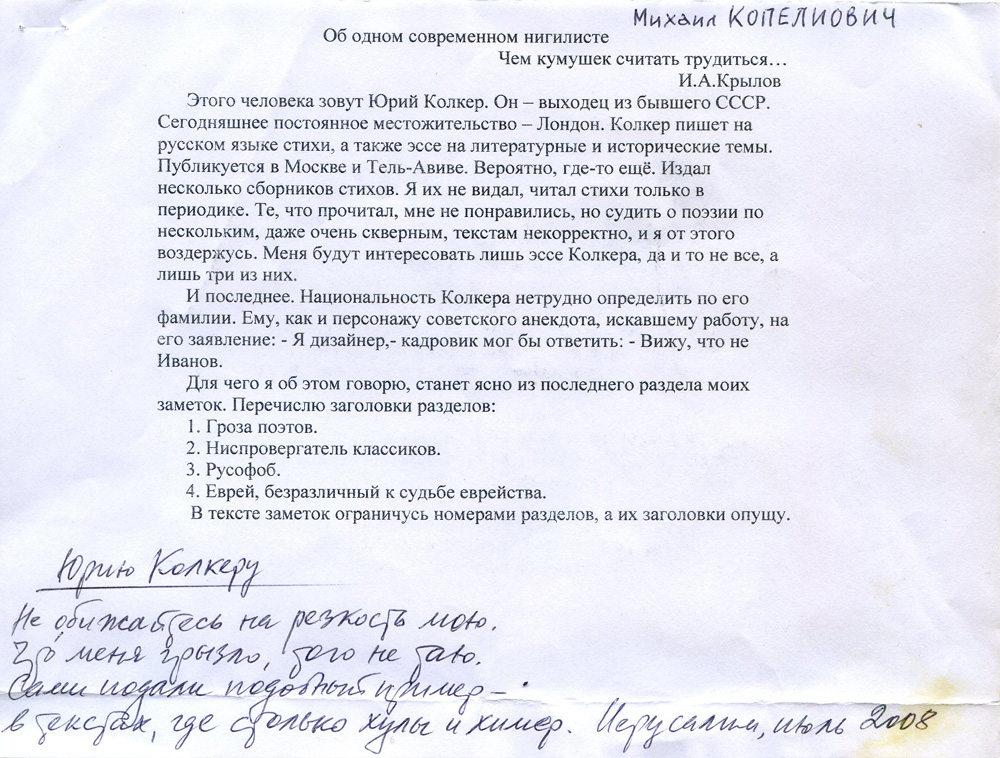 Михаил КОПЕЛИОВИЧ
Об одном современном нигилисте
Чем кумушек считать трудиться…
И.А.Крылов
Этого человека зовут Юрий Колкер. Он – выходец из бывшего СССР.
Сегодняшнее постоянное местожительство – Лондон. Колкер пишет на
русском языке стихи, а также эссе на литературные и исторические темы.
Публикуется в Москве и Тель-Авиве. Вероятно, где-то ещё. Издал
несколько сборников стихов. Я их не видал, читал стихи только в
периодике. Те, что прочитал, мне не понравились, но судить о поэзии по
нескольким, даже очень скверным, текстам некорректно, и я от этого
воздержусь. Меня будут интересовать лишь эссе Колкера, да и то не все, а
лишь три из них.
И последнее. Национальность Колкера нетрудно определить по его
фамилии. Ему, как и персонажу советского анекдота, искавшему работу, на
его заявление: - Я дизайнер,- кадровик мог бы ответить: - Вижу, что не
Иванов.
Для чего я об этом говорю, станет ясно из последнего раздела моих
заметок. Перечислю заголовки разделов:
1. Гроза поэтов.
2. Ниспровергатель классиков.
3. Русофоб.
4. Еврей, безразличный к судьбе еврейства.
В тексте заметок ограничусь номерами разделов, а их заголовки опущу.
Юрию Колкеру
Не обижайтесь на резкость мою.
Что меня грызло, того не таю.
Сами подали подобный пример –
в текстах, где столько хулы и химер. Иерусалим, июль 2008